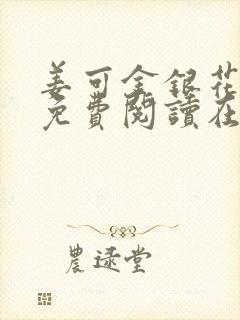 姜可金銀花
免費閱讀在
農逯堂